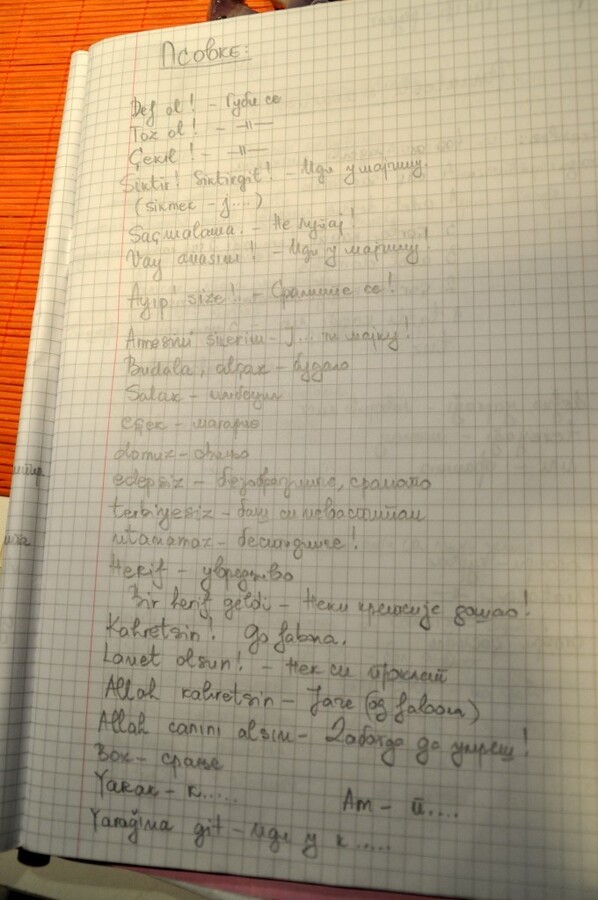 Псовке:
Def ol! – Губи се
Toz ol! – –||–
Çekil! – –||–
Siktir! Siktirgit! – Иди у марчину.
(sikmek – ј....)
Saçmalama. – Не лупај!
Vay anasını! – Иди у марчину!
Ayıp! size! – Срамите се!
Annesini sikerim – Ј... ти мајку!
Budala, alçak – будало
Salak – имбецил
eşek – магарац
domuz – свиња
edepsiz – безобразниче, срамото
terbiyesiz – баш си неваспитан
utanmaz – бестидниче!
Herif –
Bir herif geldi – Неки дошао!
Kahretsin! До ђавола.
Lanet olsun! – Нек си проклет
Allah kahretsin – Јаче (од ђавола)
Allah canını alsın – Дабогда да умреш!
Bok – срање
Yarak – к..... Am – п....
Yarağıma git – Иди у к.....